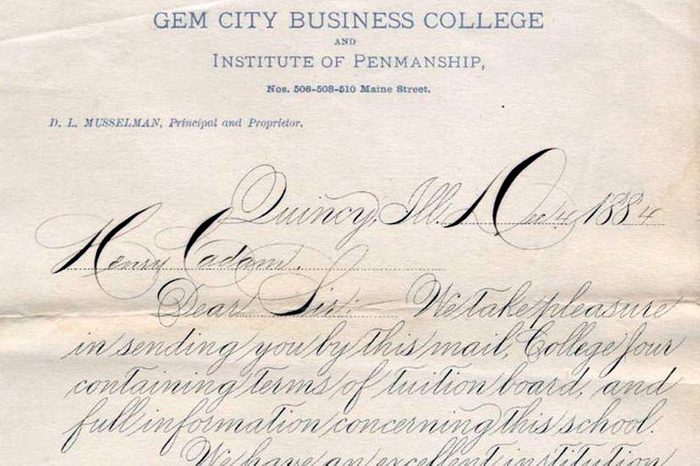 GEM CITY BUSINESS COLLEGE
AND
INSTITUTE OF PENMANSHIP,
Nos. 506-508-510 Maine Street.
D. L. MUSSELMAN, Principal and Proprietor.
Quincy, Ill. Dec 4, 1884
Henry Cadam.
Dear Sir:— We take pleasure
in sending you by this mail, College Jour
containing terms of tuition board, and
full information concerning this school.
We have an excellent institution